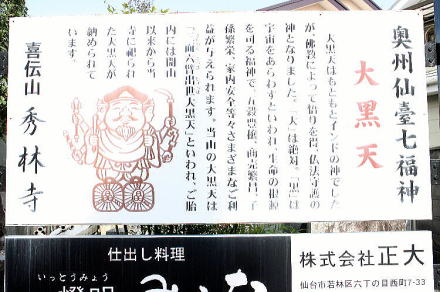 奥州仙臺七福神
大黒天
大黒天はもともとインドの神でした
が、佛教によって悟りを得、仏法守護の
神となりました。「天」は絶対、「黒」は
宇宙をあらわすといわれ、生命の根源
を司る福神で、五穀豊穣、商売繁昌、子
孫繁栄、家内安全等々さまざまなご利
益が与えられます。当山の大黒天は
「三面六臂出世大黒天」といわれ、ご胎
内には開山
以来から当
寺に祀られ
た大黒天が
納められて
います。
喜伝山 秀林寺
仕出し料理
いっとうみょう
株式会社 正大
仙台市若林区六丁の目西町7-33